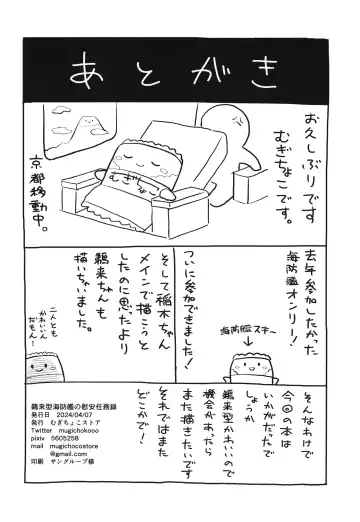 あとがき
お久しぶりです
むぎちょこです。
むぎちょ
京都移動中。
去年参加したかった
海防艦オンリー!
ついに参加できました!
海防艦スキー
そして稲木ちゃん
メインで描こうと
したのに思ったより
鵜来ちゃんも
描いちゃいました。
二人とも
かわいいん
だもん…
そんなわけで
今回の本は
いかがだったで
しょうか
鵜来型かわいいので
機会があったら
また描きたいです
それではまた
どこかで!
鵜来型海防艦の慰安任務録
発行日 2024/04/07
発行 むぎちょこストア
Twitter mugichokooo
pixiv 5605258
mail mugichocostore
@gmail.com
印刷 サングループ様